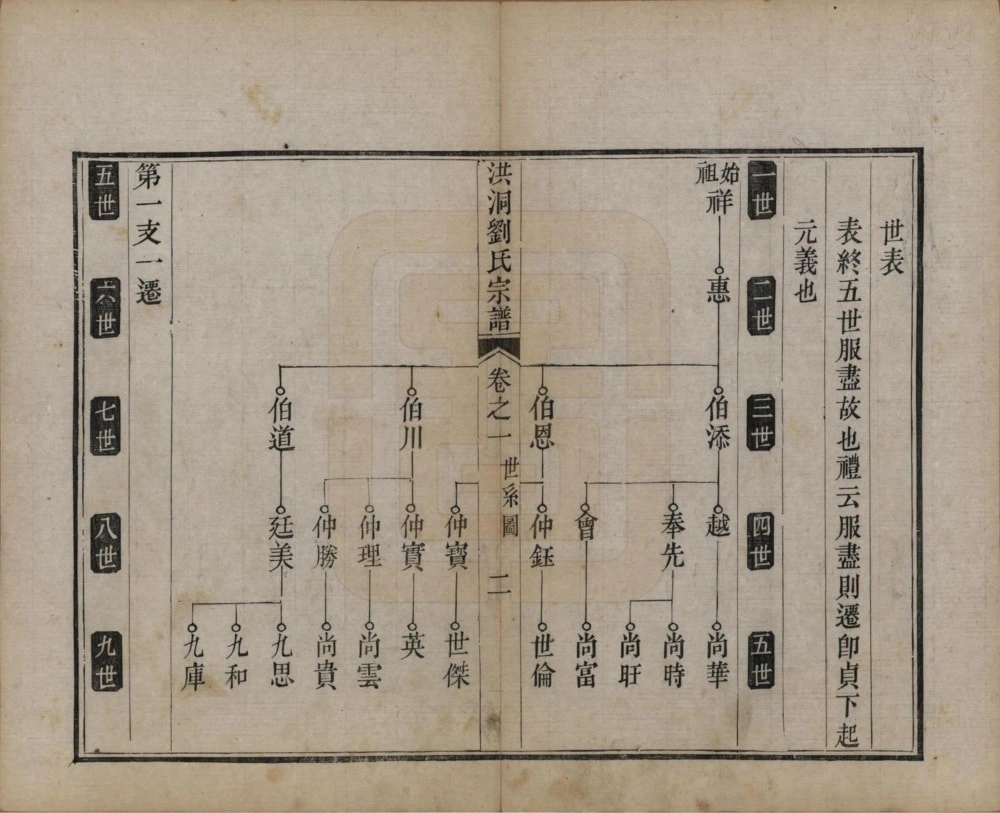 世表
表終五世服盡故也禮云服盡則遷即貞下起
元義也
一世 二世 三世 四世 五世
始祖祥 惠 伯添 越 尚華
奉先 尚時
尚旺
會 尚富
伯恩 仲鈺 世倫
洪洞劉氏宗譜 卷之一 世系圖 二
仲寶 世傑
伯川 仲實 英
仲理 尚雲
仲勝 尚貴
伯道 廷美 九思
九和
九庫
第一支一遷
五世 六世 七世 八世 九世